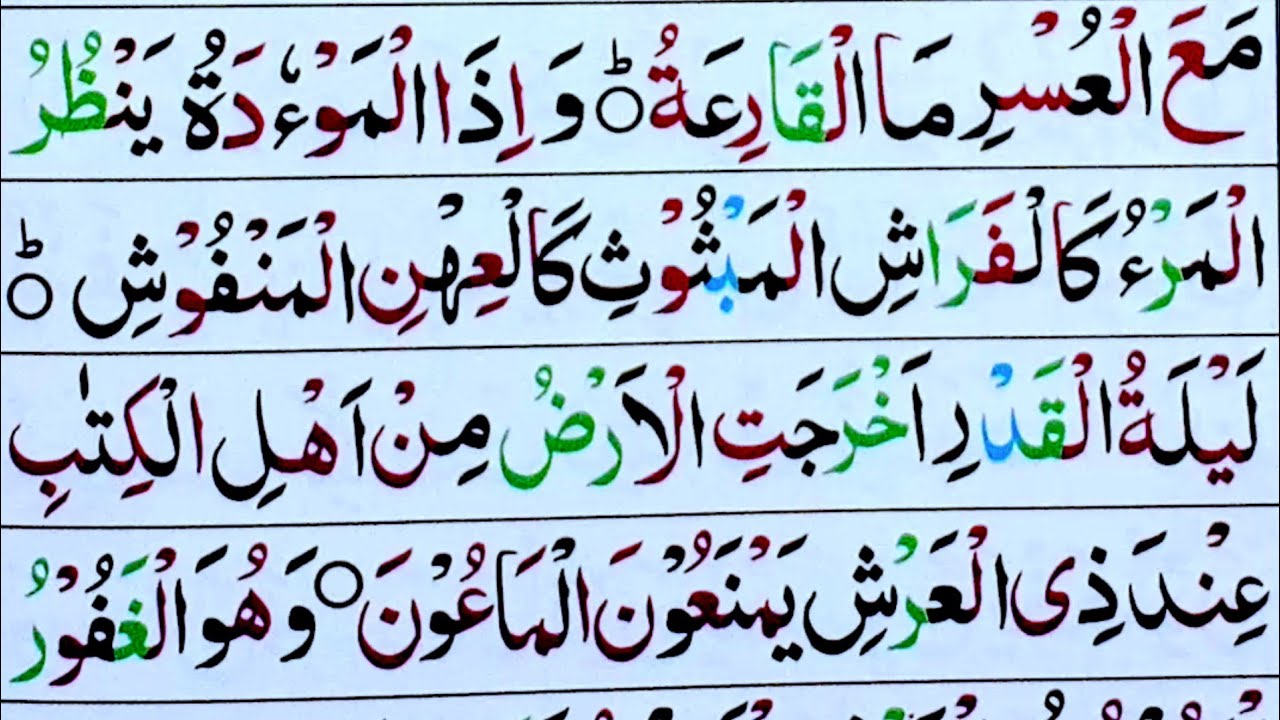 مَعَ الْعُسْرِ مَا الْقَارِعَةُ ؕ وَ اِذَا الْمَوْءٗدَةُ يَنْظُرُ
الْمَرْءُ كَالْفَرَاشِ الْمَبْثُوْثِ كَالْعِهْنِ الْمَنْفُوْشِ ؕ
لَيْلَةُ الْقَدْرِ اَخْرَجَتِ الْاَرْضُ مِنْ اَهْلِ الْكِتٰبِ
عِنْدَ ذِى الْعَرْشِ يَمْنَعُوْنَ الْمَاعُوْنَ ۝ وَ هُوَ الْغَفُوْرُ